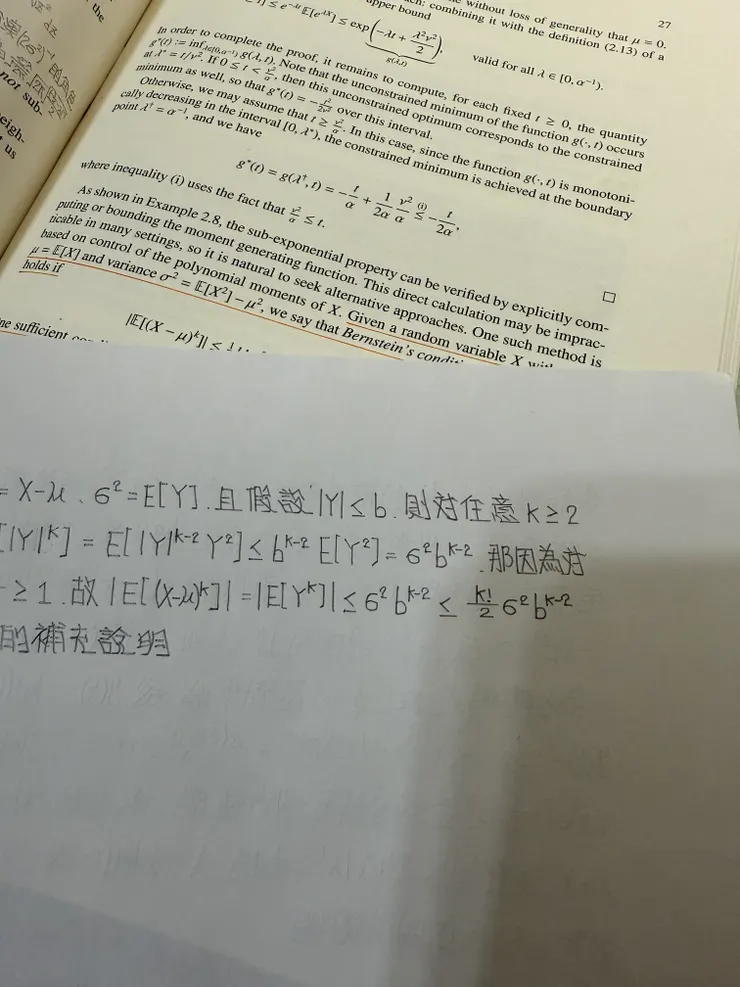 27
without loss of generality that μ = 0.
combining it with the definition (2.13) of a
upper bound
≤ e^{-λt} E[e^{λX}] ≤ exp(−λt + λ²ν²/2), valid for all λ ∈ [0, α⁻¹).
g(λ,t)
In order to complete the proof, it remains to compute, for each fixed t ≥ 0, the quantity
g*(t) := inf_{λ∈[0,α⁻¹)} g(λ, t). Note that the unconstrained minimum of the function g(·, t) occurs
at λ* = t/ν². If 0 ≤ t < ν²/α, then this unconstrained optimum corresponds to the constrained
minimum as well, so that g*(t) = −t²/2ν² over this interval.
Otherwise, we may assume that t ≥ ν²/α. In this case, since the function g(·, t) is monotoni-
cally decreasing in the interval [0, λ*), the constrained minimum is achieved at the boundary
point λ† = α⁻¹, and we have
g*(t) = g(λ†, t) = −t/α + 1/2α ν²/α ≤(i) −t/2α,
where inequality (i) uses the fact that ν²/α ≤ t.
As shown in Example 2.8, the sub-exponential property can be verified by explicitly com-
puting or bounding the moment generating function. This direct calculation may be imprac-
ticable in many settings, so it is natural to seek alternative approaches. One such method is
based on control of the polynomial moments of X. Given a random variable X with
μ = E[X] and variance σ² = E[X²] − μ², we say that Bernstein's
holds if
|E[(X − μ)^k]| ≤
sufficient
the
的角色
not sub-
eigh-
us
= X-μ、σ²=E[Y].且假設|Y|≤b.則對任意k≥2
[|Y|^k] = E[|Y|^{k-2} Y²] ≤ b^{k-2} E[Y²] = σ²b^{k-2}.那因為対
≥1.故|E[(X-μ)^k]| = |E[Y^k]| ≤ σ²b^{k-2} ≤ k!/2 σ²b^{k-2}
的補充說明